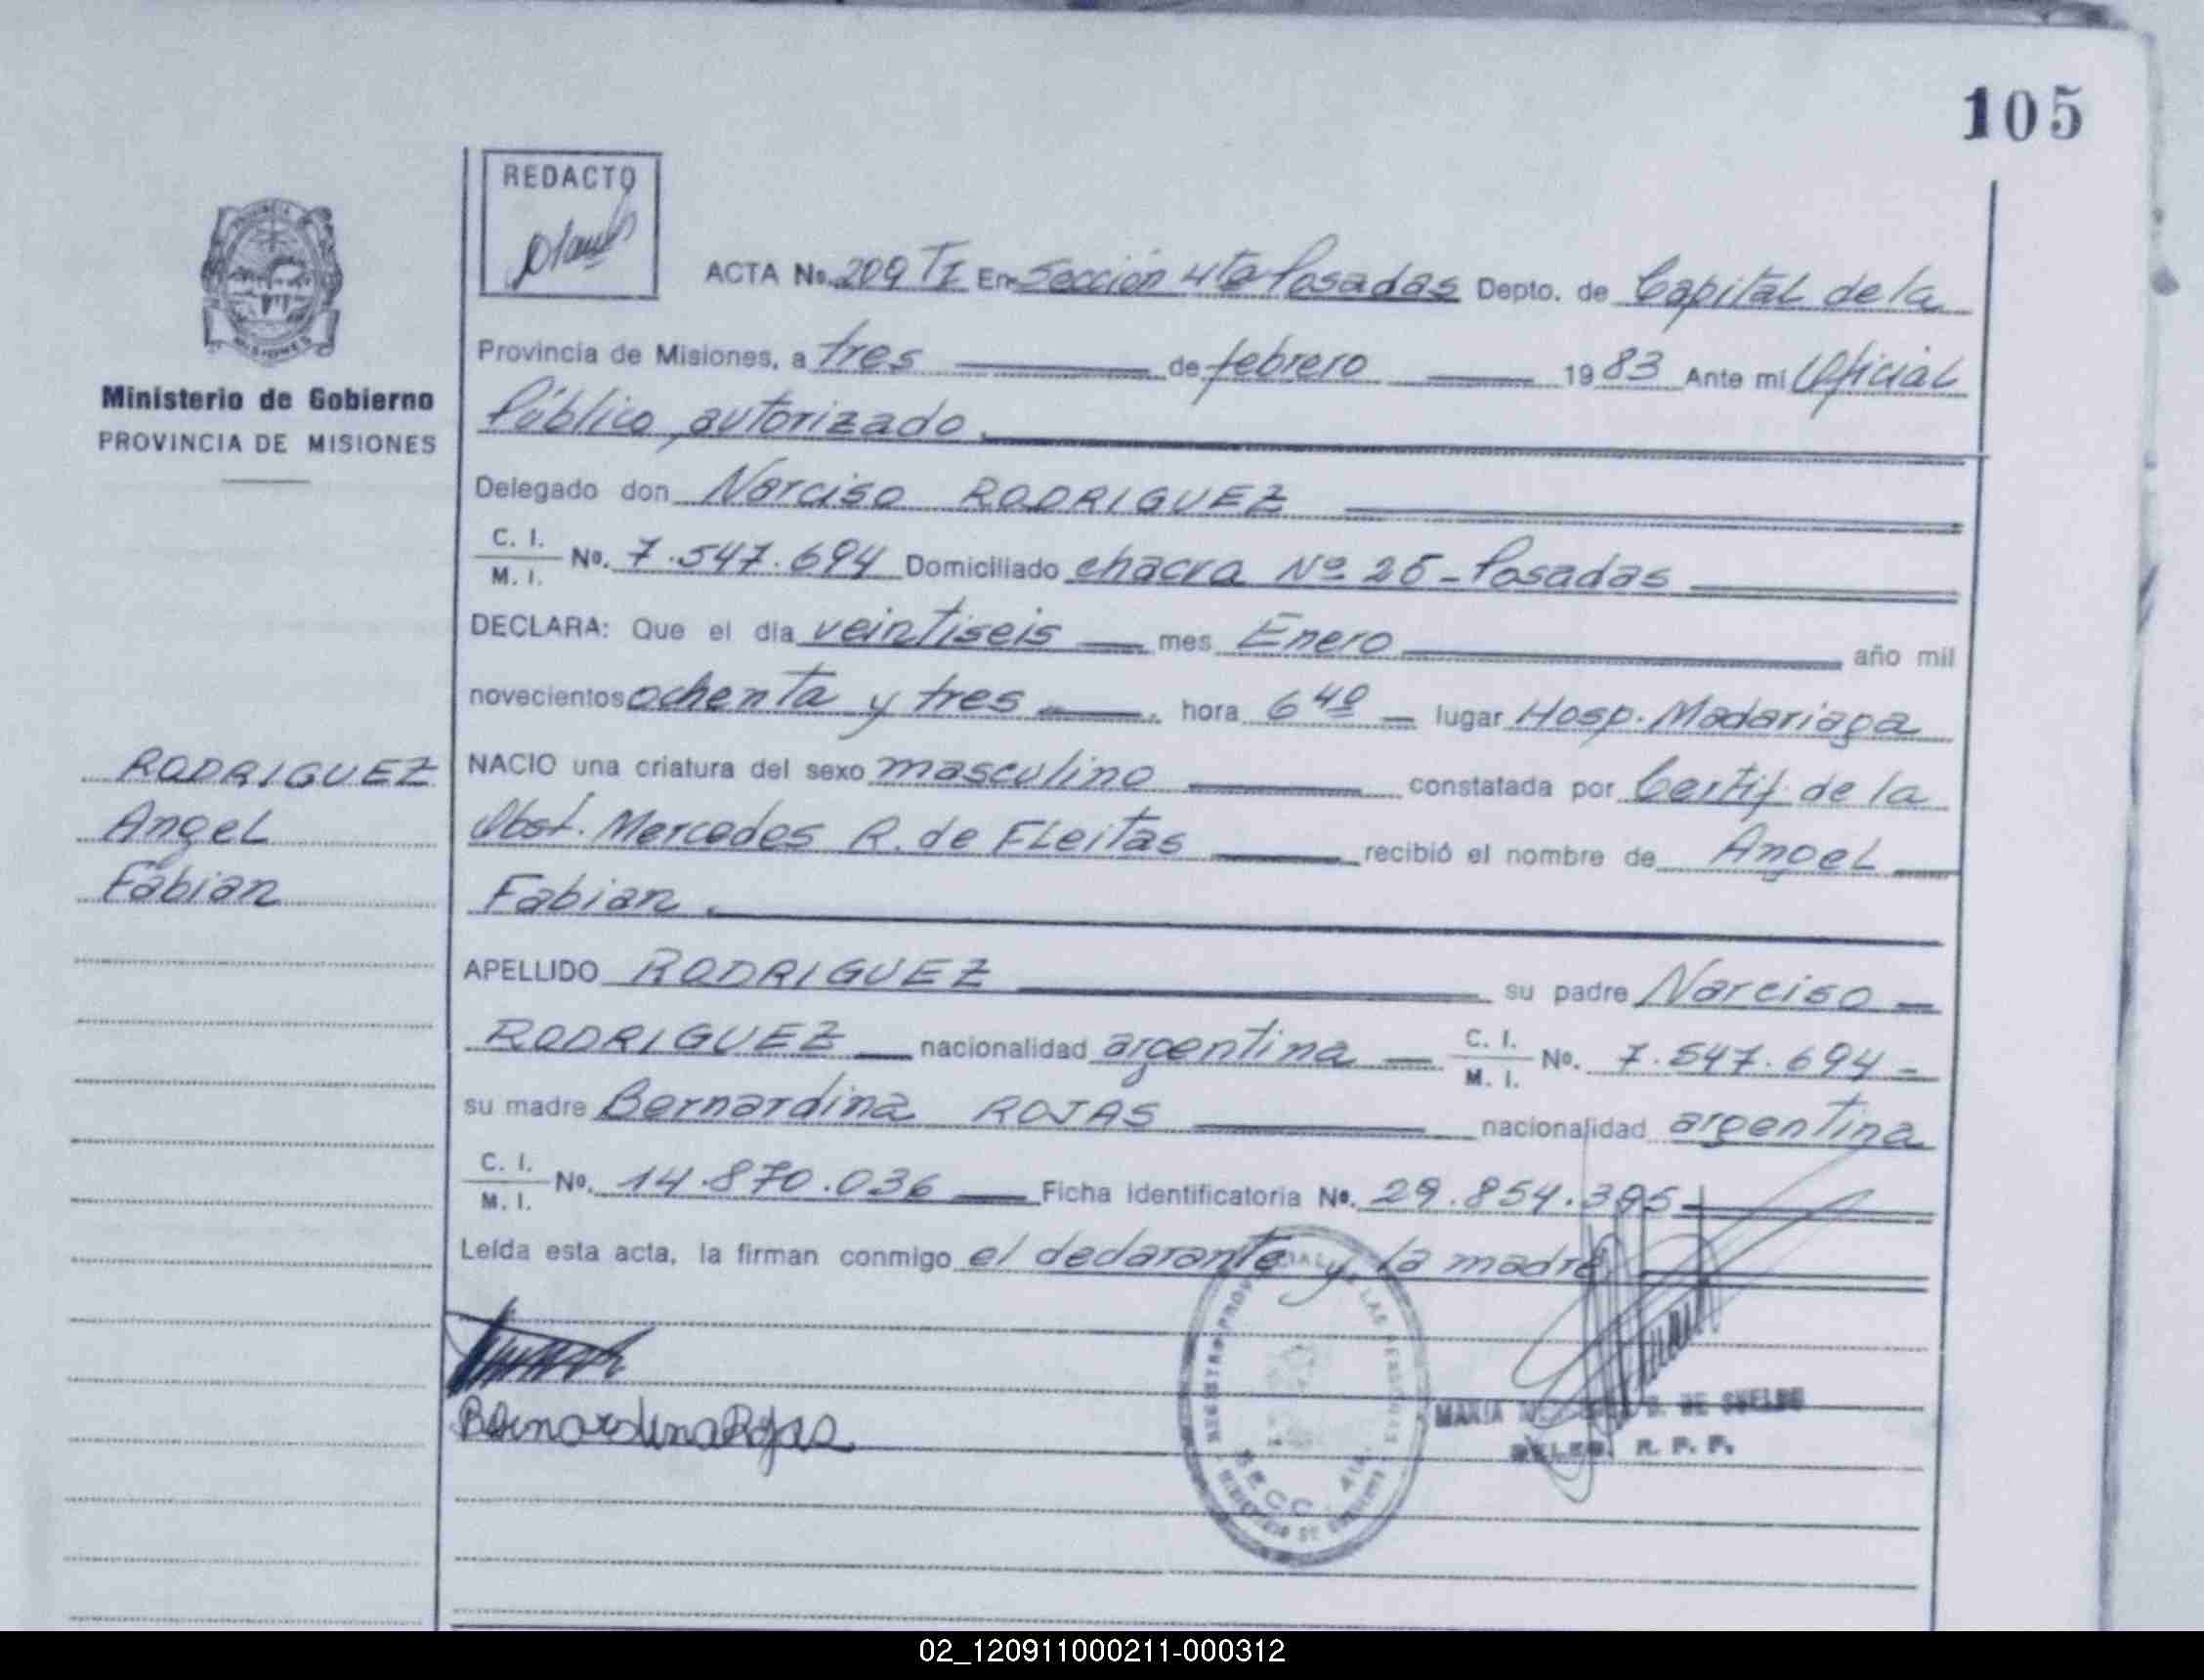 105
REDACTO
ACTA No. 209 TI En Sección 4ta Posadas Depto. de Capital de la
Provincia de Misiones, a tres de febrero 1983 Ante mí Oficial
Público autorizado
Ministerio de Gobierno
PROVINCIA DE MISIONES
Delegado don Narciso RODRIGUEZ
C. I.
M. I. No. 7.547.694 Domiciliado chacra Nº 25 - Posadas
DECLARA: Que el día veintiseis mes Enero año mil
novecientos ochenta y tres hora 6 40 lugar Hosp. Madariaga
RODRIGUEZ
Angel
Fabian
NACIO una criatura del sexo masculino constatada por Certif. de la
Obst. Mercedes R. de FLeitas recibió el nombre de Angel
Fabian
APELLIDO RODRIGUEZ su padre Narciso
RODRIGUEZ nacionalidad argentina C. I.
M. I. No. 7.547.694
su madre Bernardina ROJAS nacionalidad argentina
C. I.
M. I. No. 14.870.036 Ficha Identificatoria No. 29.854.395
Leída esta acta, la firman conmigo el declarante y la madre
Bernardina Rojas
MARIA DE SUELDO
DELEG. R. P. P.
REGISTRO PROVINCIAL DE LAS PERSONAS
SECC. 4ta.
MINISTERIO DE GOBIERNO
02_120911000211-000312